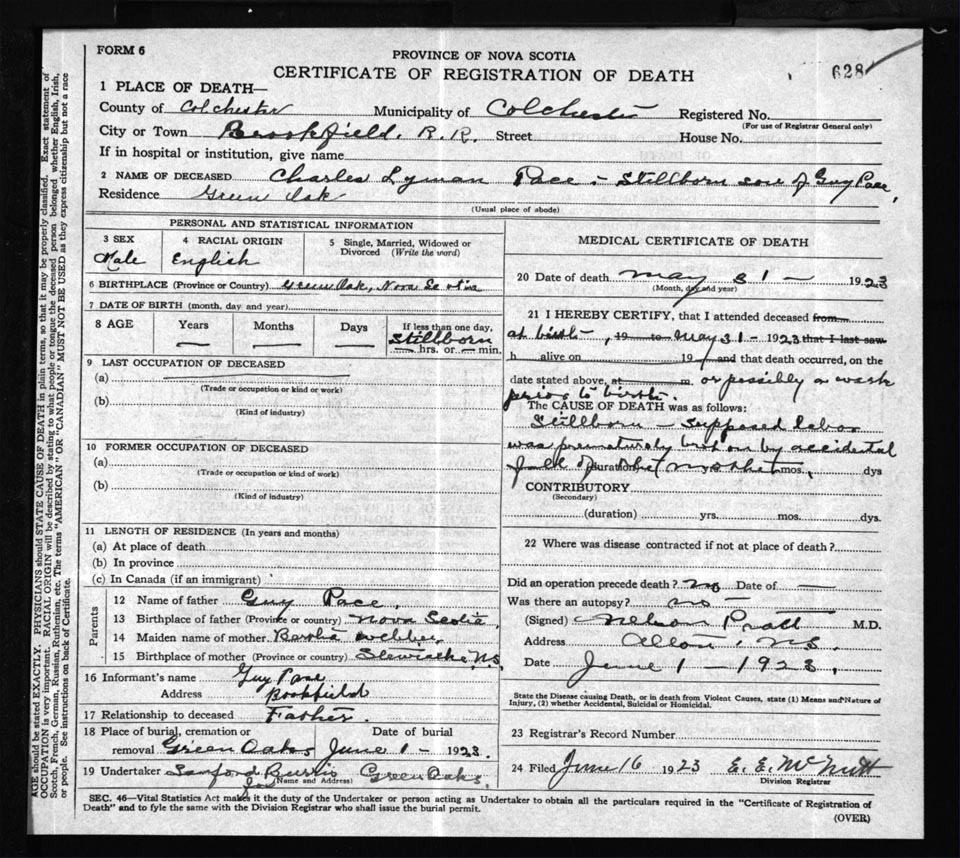 FORM 6
PROVINCE OF NOVA SCOTIA
CERTIFICATE OF REGISTRATION OF DEATH
628
1 PLACE OF DEATH—
County of Colchester Municipality of Colchester Registered No.
(For use of Registrar General only)
City or Town Brookfield. R.R. Street House No.
If in hospital or institution, give name
2 NAME OF DECEASED Charles Lyman Pace - Stillborn son of Guy Pace,
Residence Green Oak
(Usual place of abode)
PERSONAL AND STATISTICAL INFORMATION
3 SEX Male
4 RACIAL ORIGIN English
5 Single, Married, Widowed or Divorced (Write the word)
6 BIRTHPLACE (Province or Country) Green Oak, Nova Scotia
7 DATE OF BIRTH (month, day and year)
8 AGE Years Months Days If less than one day,
Stillborn
— — — hrs. or — min.
9 LAST OCCUPATION OF DECEASED
(a)
(Trade or occupation or kind or work)
(b)
(Kind of industry)
10 FORMER OCCUPATION OF DECEASED
(a)
(Trade or occupation or kind of work)
(b)
(Kind of industry)
11 LENGTH OF RESIDENCE (In years and months)
(a) At place of death
(b) In province
(c) In Canada (if an immigrant)
Parents
12 Name of father Guy Pace,
13 Birthplace of father (Province or country) Nova Scotia,
14 Maiden name of mother
15 Birthplace of mother (Province or country) Stewiacke N.S.
16 Informant's name Guy Pace
Address Brookfield
17 Relationship to deceased Father.
18 Place of burial, cremation or Date of burial
removal Green Oaks June 1 - 1923
19 Undertaker Sanford Green Oaks
(Name and Address)
MEDICAL CERTIFICATE OF DEATH
20 Date of death May 31 - 1923
(Month, day and year)
21 I HEREBY CERTIFY, that I attended deceased from
at birth - , 19 to May 31 - 1923 that I last saw
h alive on 19 and that death occurred, on the
date stated above, at m. or possibly a week
prior to birth.
The CAUSE OF DEATH was as follows:
Stillborn - supposed labor
was prematurely brot on by accidental
fall of the mother,
(duration) mos. dys
CONTRIBUTORY
(Secondary)
(duration) yrs. mos. dys.
22 Where was disease contracted if not at place of death?
Did an operation precede death? no Date of —
Was there an autopsy? no -
(Signed) Nelson Pratt M.D.
Address N.S.
Date June 1 - 1923.
State the Disease causing Death, or in death from Violent Causes, state (1) Means and Nature of
Injury, (2) whether Accidental, Suicidal or Homicidal.
23 Registrar's Record Number
24 Filed June 16 1923 E. E. McNutt
Division Registrar
SEC. 46—Vital Statistics Act makes it the duty of the Undertaker or person acting as Undertaker to obtain all the particulars required in the "Certificate of Registration of
Death" and to fyle the same with the Division Registrar who shall issue the burial permit.
(OVER)
AGE should be stated EXACTLY. PHYSICIANS should STATE CAUSE OF DEATH in plain terms, so that it may be properly classified. Exact statement of
OCCUPATION is very important. RACIAL ORIGIN will be described by stating to what people or tongue the deceased person belonged whether English, Irish,
Scotch, French, German, Russian, Ruthenian, etc. The terms "AMERICAN" OR "CANADIAN" MUST NOT BE USED as they express citizenship but not a race
or people. See instructions on back of Certificate.